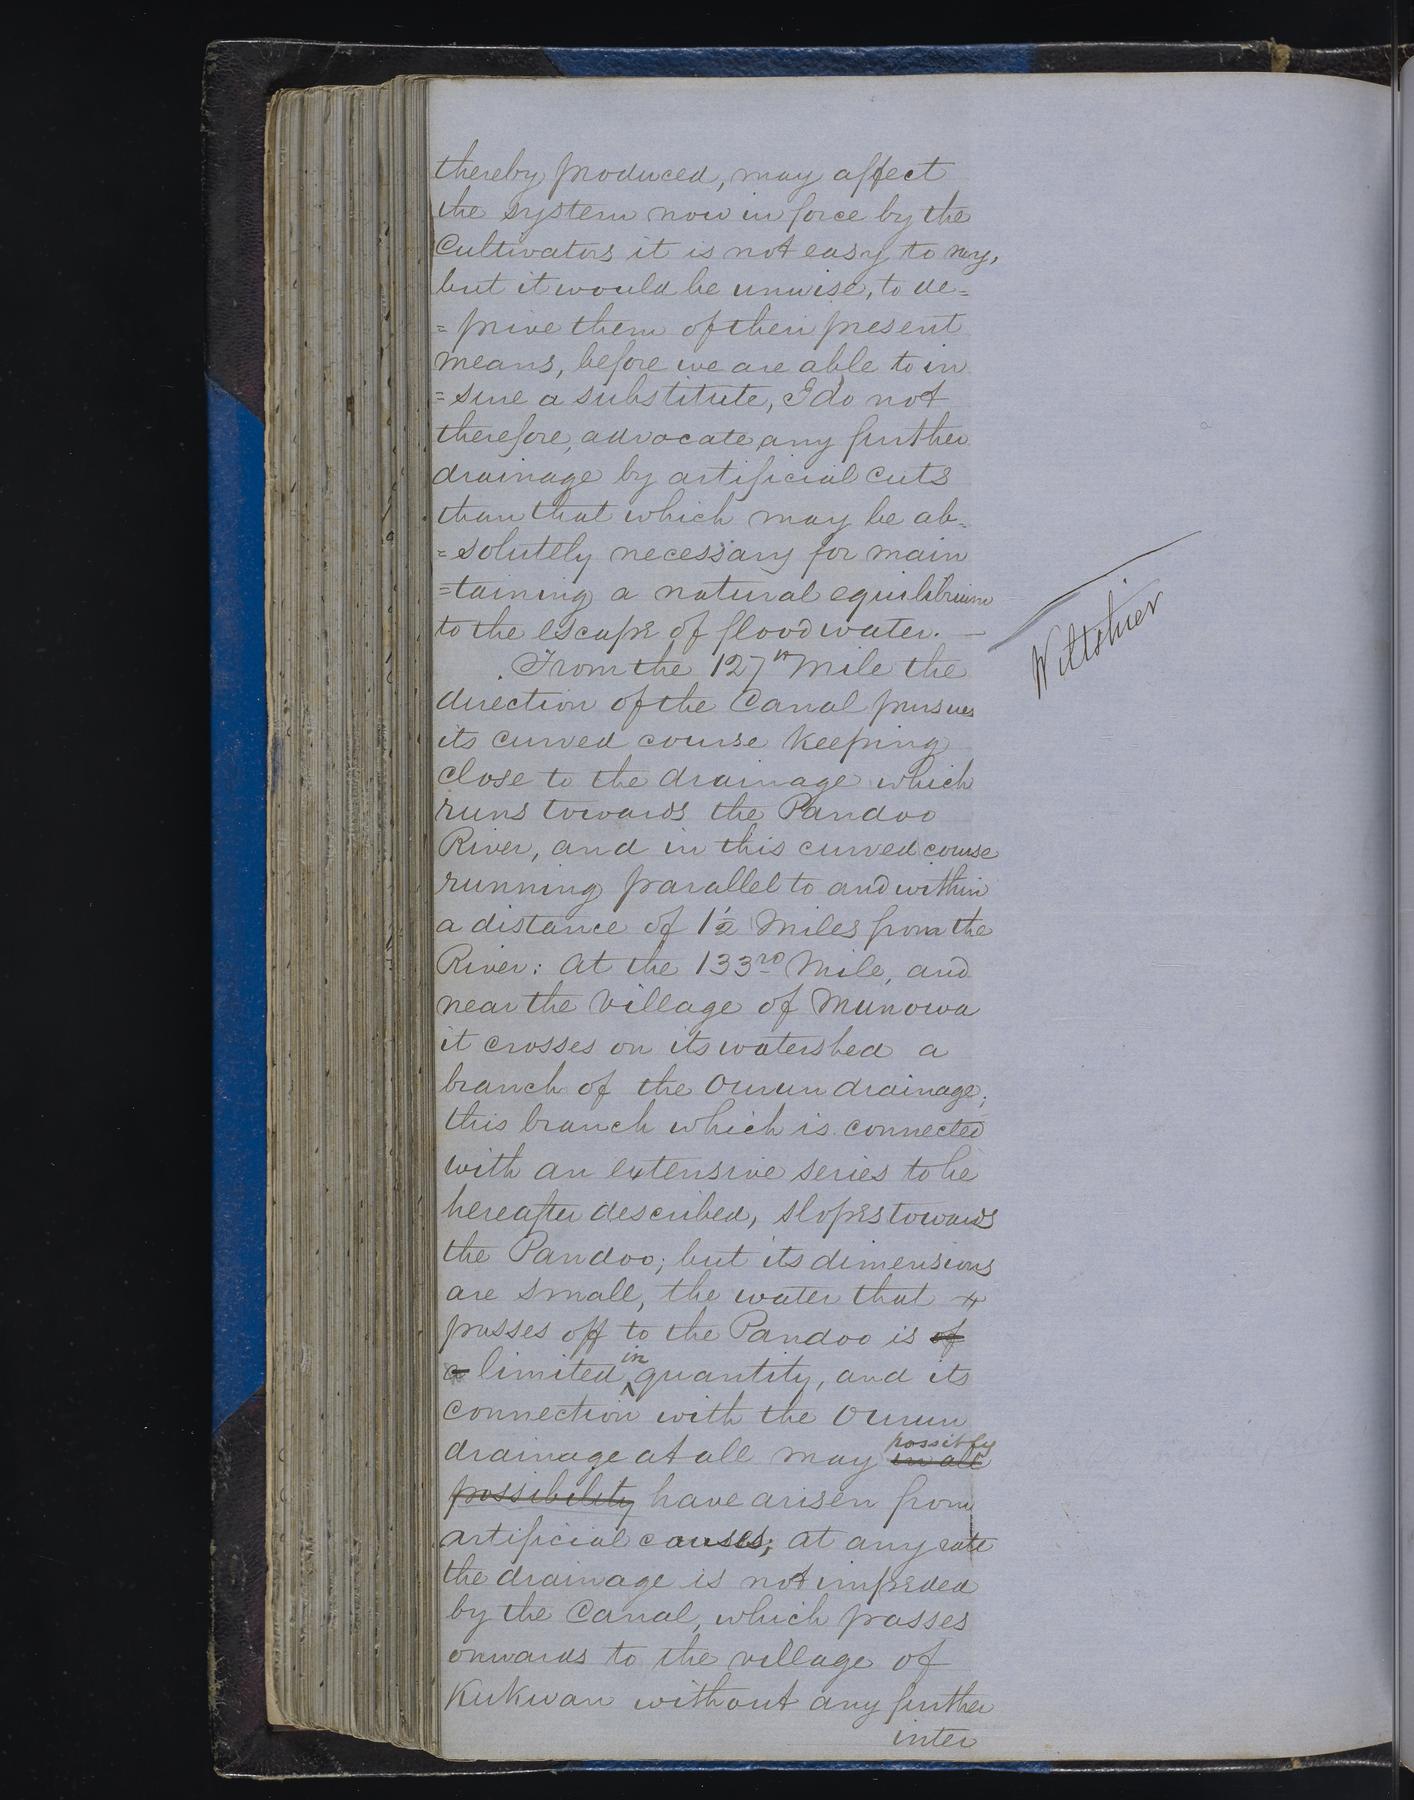 thereby produced, may affect
the system now in force by the
Cultivators it is not easy to say,
but it would be unwise, to de=
=prive them of their present
means, before we are able to in
=sure a substitute, I do not
therefore, advocate any further
drainage by artificial cuts
than that which may be ab=
=solutely necessary for main
=taining a natural equilibrium
to the escape of flood water. —
Wiltshier
From the 127th Mile the
direction of the Canal pursues
its curved course keeping
close to the drainage which
runs towards the Pandoo
River, and in this curved course
running parallel to and within
a distance of 1½ Miles from the
River: At the 133rd Mile, and
near the Village of Munowa
it crosses on its watershed a
branch of the Ourun drainage;
this branch which is connected
with an extensive series to be
hereafter described, slopes towards
the Pandoo; but its dimensions
are small, the water that
passes off to the Pandoo is of
a limited in quantity, and its
connection with the Ourun
drainage at all may in all possibly
possibility have arisen from
artificial causes; at any rate
the drainage is not impeded
by the Canal, which passes
onwards to the village of
Kukwan without any further
inter